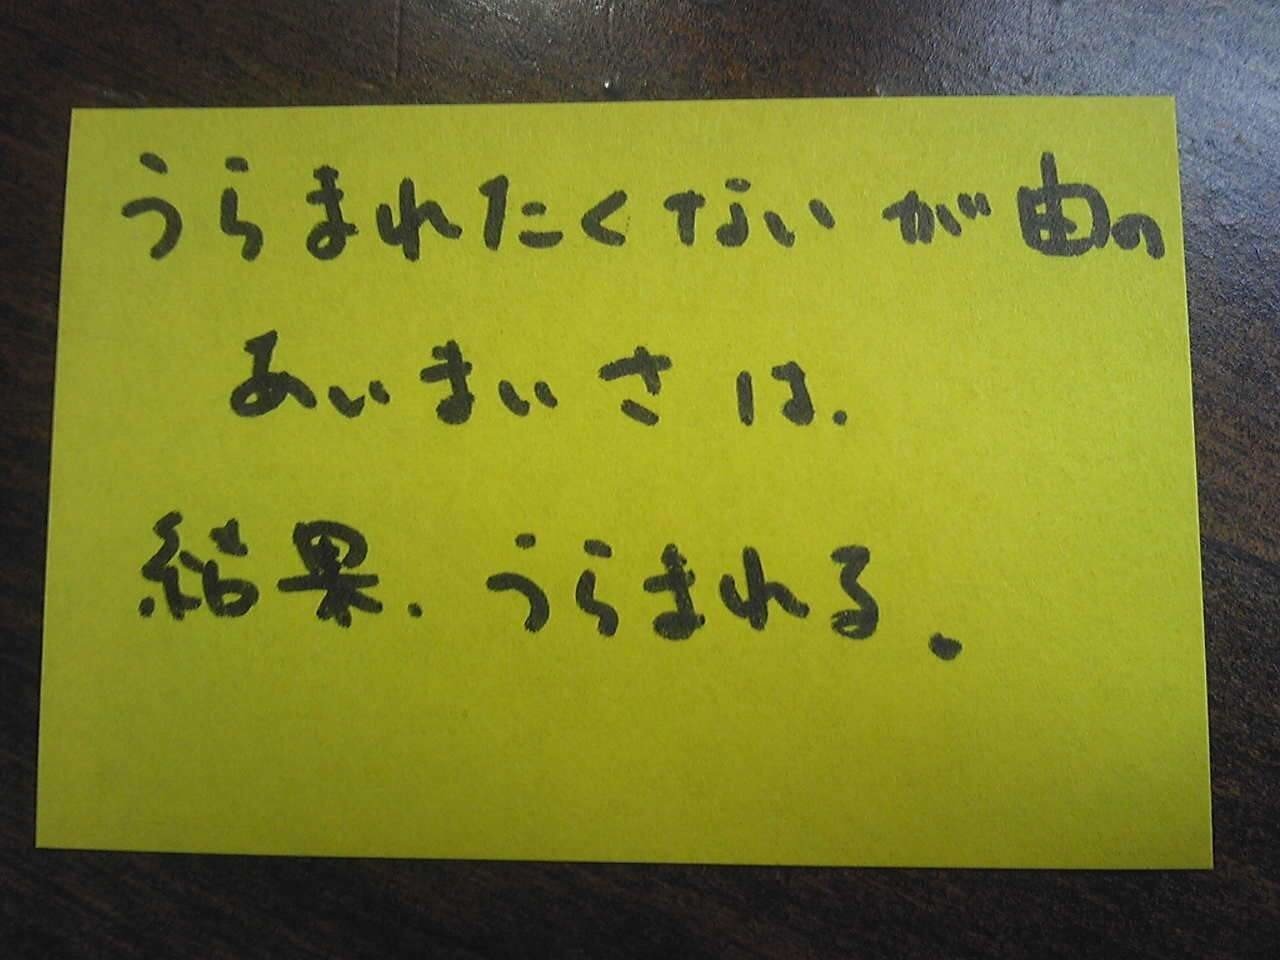 うらまれたくないが由の
あいまいさは.
結果.うらまれる.